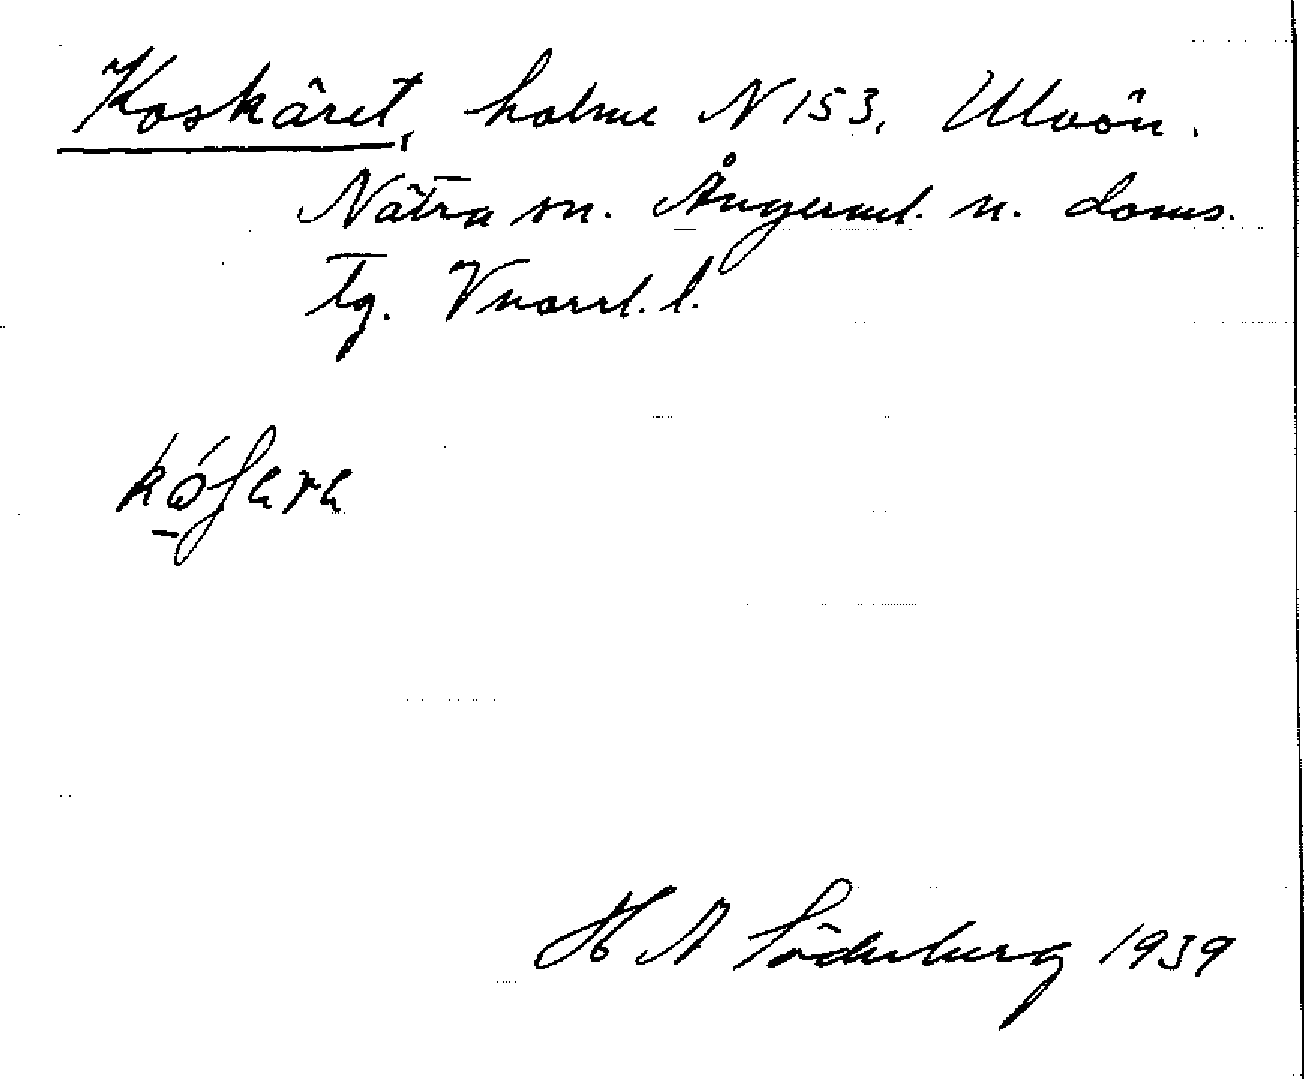 Koskäret, holme N 153, Ulvön.
Nätra sn. Ångerml. n. doms.
tg. Vnorrl. l.
H A Söderberg 1939